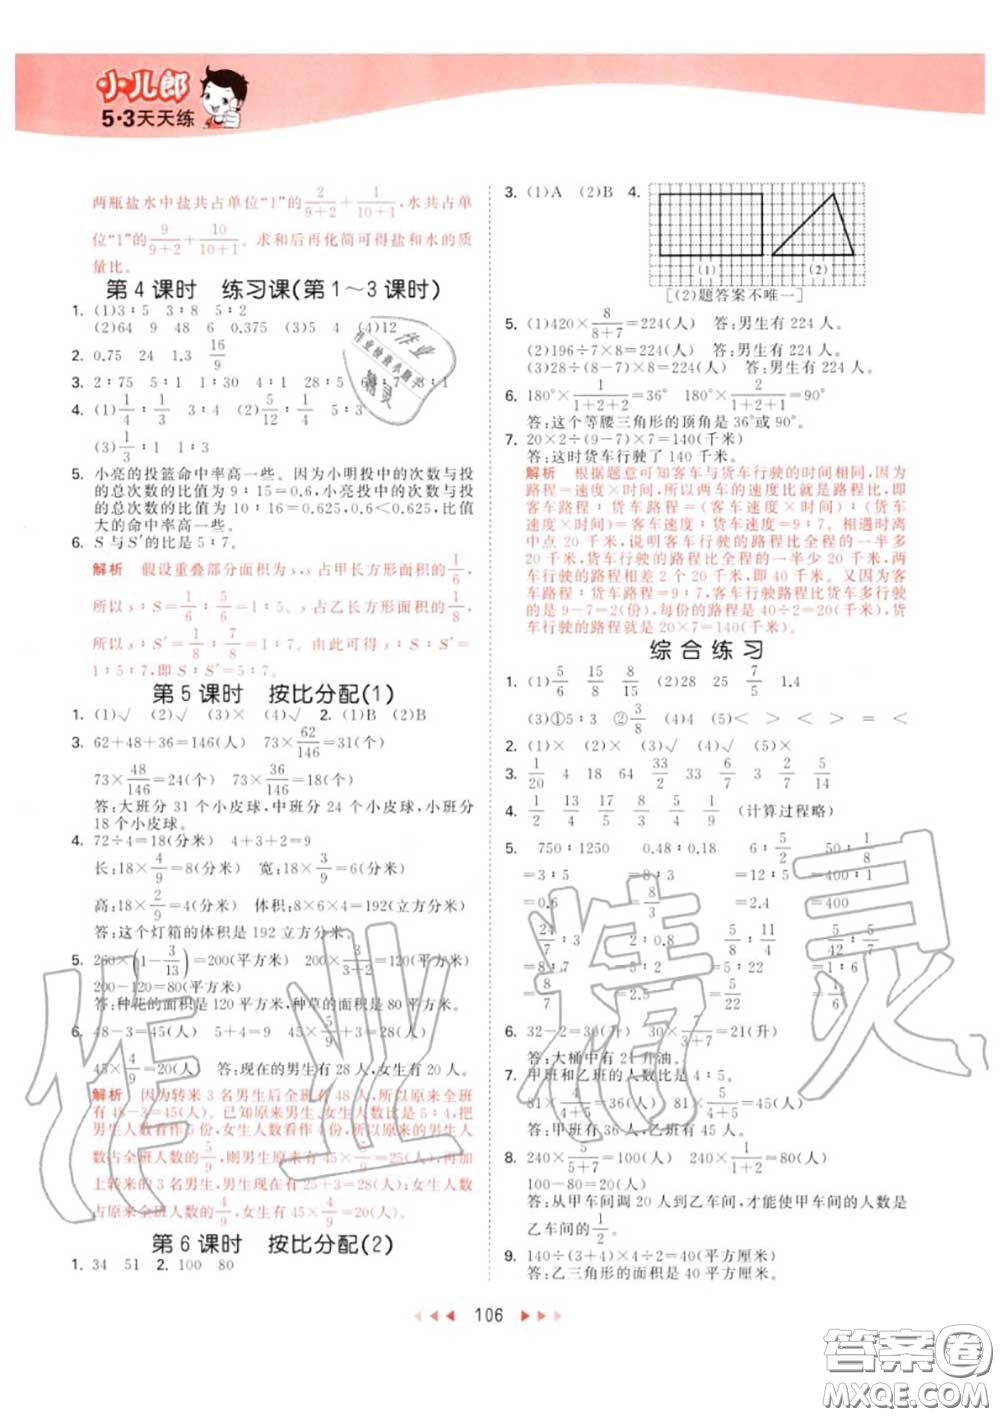 小儿郎
5·3天天练
两瓶盐水中盐共占单位“1”的2/(9+2)+1/(10+1),水共占单
位“1”的9/(9+2)+10/(10+1)。求和后再化简可得盐和水的质
量比。
第4课时 练习课(第1～3课时)
1. (1)3∶5 3∶8 5∶2
(2)64 9 48 6 0.375 (3)5 4 (4)12
2. 0.75 24 1.3 16/9
3. 2∶75 5∶1 1∶30 4∶1 28∶5 6∶7 1∶1
4. (1)1/4∶1/3 3∶4 (2)5/12∶1/4 5∶3
(3)1/3∶1 1∶3
5. 小亮的投篮命中率高一些。因为小明投中的次数与投
的总次数的比值为9∶15=0.6,小亮投中的次数与投
的总次数的比值为10∶16=0.625,0.6<0.625,比值
大的命中率高一些。
6. S与S′的比是5∶7。
解析 假设重叠部分面积为s,s占甲长方形面积的1/6,
所以s∶S=1/6∶5/6=1∶5。s占乙长方形面积的1/8,
所以s∶S′=1/8∶7/8=1∶7。由此可得s∶S∶S′=
1∶5∶7,即S∶S′=5∶7。
第5课时 按比分配(1)
1. (1)√ (2)√ (3)× (4)√ 2. (1)B (2)B
3. 62+48+36=146(人) 73×62/146=31(个)
73×48/146=24(个) 73×36/146=18(个)
答:大班分31个小皮球,中班分24个小皮球,小班分
18个小皮球。
4. 72÷4=18(分米) 4+3+2=9
长:18×4/9=8(分米) 宽:18×3/9=6(分米)
高:18×2/9=4(分米) 体积:8×6×4=192(立方分米)
答:这个灯箱的体积是192立方分米。
5. 260×(1-3/13)=200(平方米) 200×3/(3+2)=120(平方米)
200-120=80(平方米)
答:种花的面积是120平方米,种草的面积是80平方米。
6. 48-3=45(人) 5+4=9 45×5/9+3=28(人)
45×4/9=20(人) 答:现在的男生有28人,女生有20人。
解析 因为转来3名男生后全班有48人,所以原来全班
有48-3=45(人)。已知原来男生、女生人数比是5∶4,把
男生人数看作5份,女生人数看作4份,所以原来的男生人
数占全班人数的5/9,则男生原来有45×5/9=25(人),再加
上转来的3名男生,男生现在有25+3=28(人);女生人数
占原来全班人数的4/9,女生有45×4/9=20(人)。
第6课时 按比分配(2)
1. 34 51 2. 100 80
3. (1)A (2)B 4.
(1)
(2)
[(2)题答案不唯一]
5. (1)420×8/(8+7)=224(人) 答:男生有224人。
(2)196÷7×8=224(人) 答:男生有224人。
(3)28÷(8-7)×8=224(人) 答:男生有224人。
6. 180°×1/(1+2+2)=36° 180°×2/(2+1+1)=90°
答:这个等腰三角形的顶角是36°或90°。
7. 20×2÷(9-7)×7=140(千米)
答:这时货车行驶了140千米。
解析 根据题意可知客车与货车行驶的时间相同,因为
路程=速度×时间,所以两车的速度比就是路程比,即
客车路程∶货车路程=(客车速度×时间)∶(货车
速度×时间)=客车速度∶货车速度=9∶7。相遇时离
中点20千米,说明客车行驶的路程比全程的一半多
20千米,货车行驶的路程比全程的一半少20千米,两
车行驶的路程相差2个20千米,即40千米。又因为客
车路程∶货车路程=9∶7,客车行驶的路程比货车多行
的是9-7=2(份),每份的路程是40÷2=20(千米),货
车行驶的路程就是20×7=140(千米)。
综合练习
1. (1)5/6 15/8 8/15 (2)28 25 7/5 1.4
(3)①5∶3 ②3/8 (4)4 (5)< > < > = <
2. (1)× (2)× (3)√ (4)√ (5)×
3. 1/20 4 18 64 33/2 33 6/7 3 2/7 5/14
4. 1/2 13/4 17/5 8/4 5/4 1/9 (计算过程略)
5. 750∶1250 0.48∶0.18 6∶5/2 50∶1/8
=3∶5 =8∶3 =12∶5 =400∶1
=0.6 =8/3 =2.4 =400
24/7∶3 2∶0.8 5/8∶11/4 5/42∶5/7
=8∶7 =5∶2 =5∶22 =1∶6
=8/7 =2.5 =5/22 =1/6
6. 32-2=30(升) 30×7/(3+7)=21(升)
答:大桶中有21升油。
7. 甲班和乙班的人数比是4∶5。
81×4/9=36(人) 81×5/9=45(人)
答:甲班有36人,乙班有45人。
8. 240×5/(5+7)=100(人) 240×1/(1+2)=80(人)
100-80=20(人)
答:从甲车间调20人到乙车间,才能使甲车间的人数是
乙车间的1/2。
9. 140÷(3+4)×4÷2=40(平方厘米)
答:乙三角形的面积是40平方厘米。
106
作业精灵
作业
作业检查小助手
精灵
答案圈
MXQE.COM